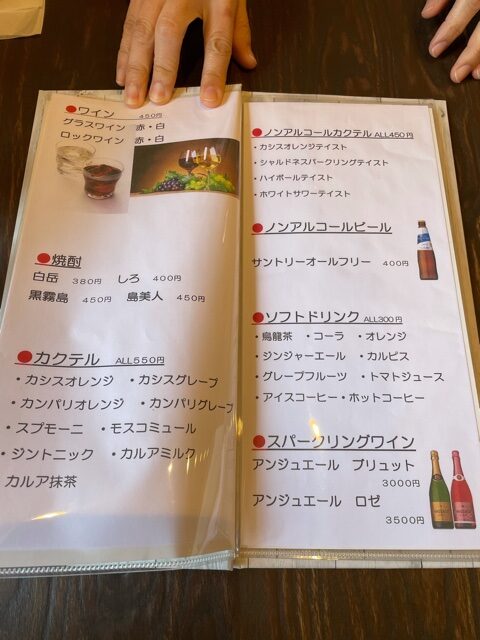 ●ワイン 450円
グラスワイン 赤・白
ロックワイン 赤・白
●焼酎
白岳 380円 しろ 400円
黒霧島 450円 島美人 450円
●カクテル ALL550円
・カシスオレンジ ・カシスグレープ
・カンパリオレンジ ・カンパリグレープ
・スプモーニ ・モスコミュール
・ジントニック ・カルアミルク
カルア抹茶
●ノンアルコールカクテル ALL450円
・カシスオレンジテイスト
・シャルドネスパークリングテイスト
・ハイボールテイスト
・ホワイトサワーテイスト
●ノンアルコールビール
サントリーオールフリー 400円
●ソフトドリンク ALL300円
・烏龍茶 ・コーラ ・オレンジ
・ジンジャーエール ・カルピス
・グレープフルーツ ・トマトジュース
・アイスコーヒー・ホットコーヒー
●スパークリングワイン
アンジュエール ブリュット
3000円
アンジュエール ロゼ
3500円